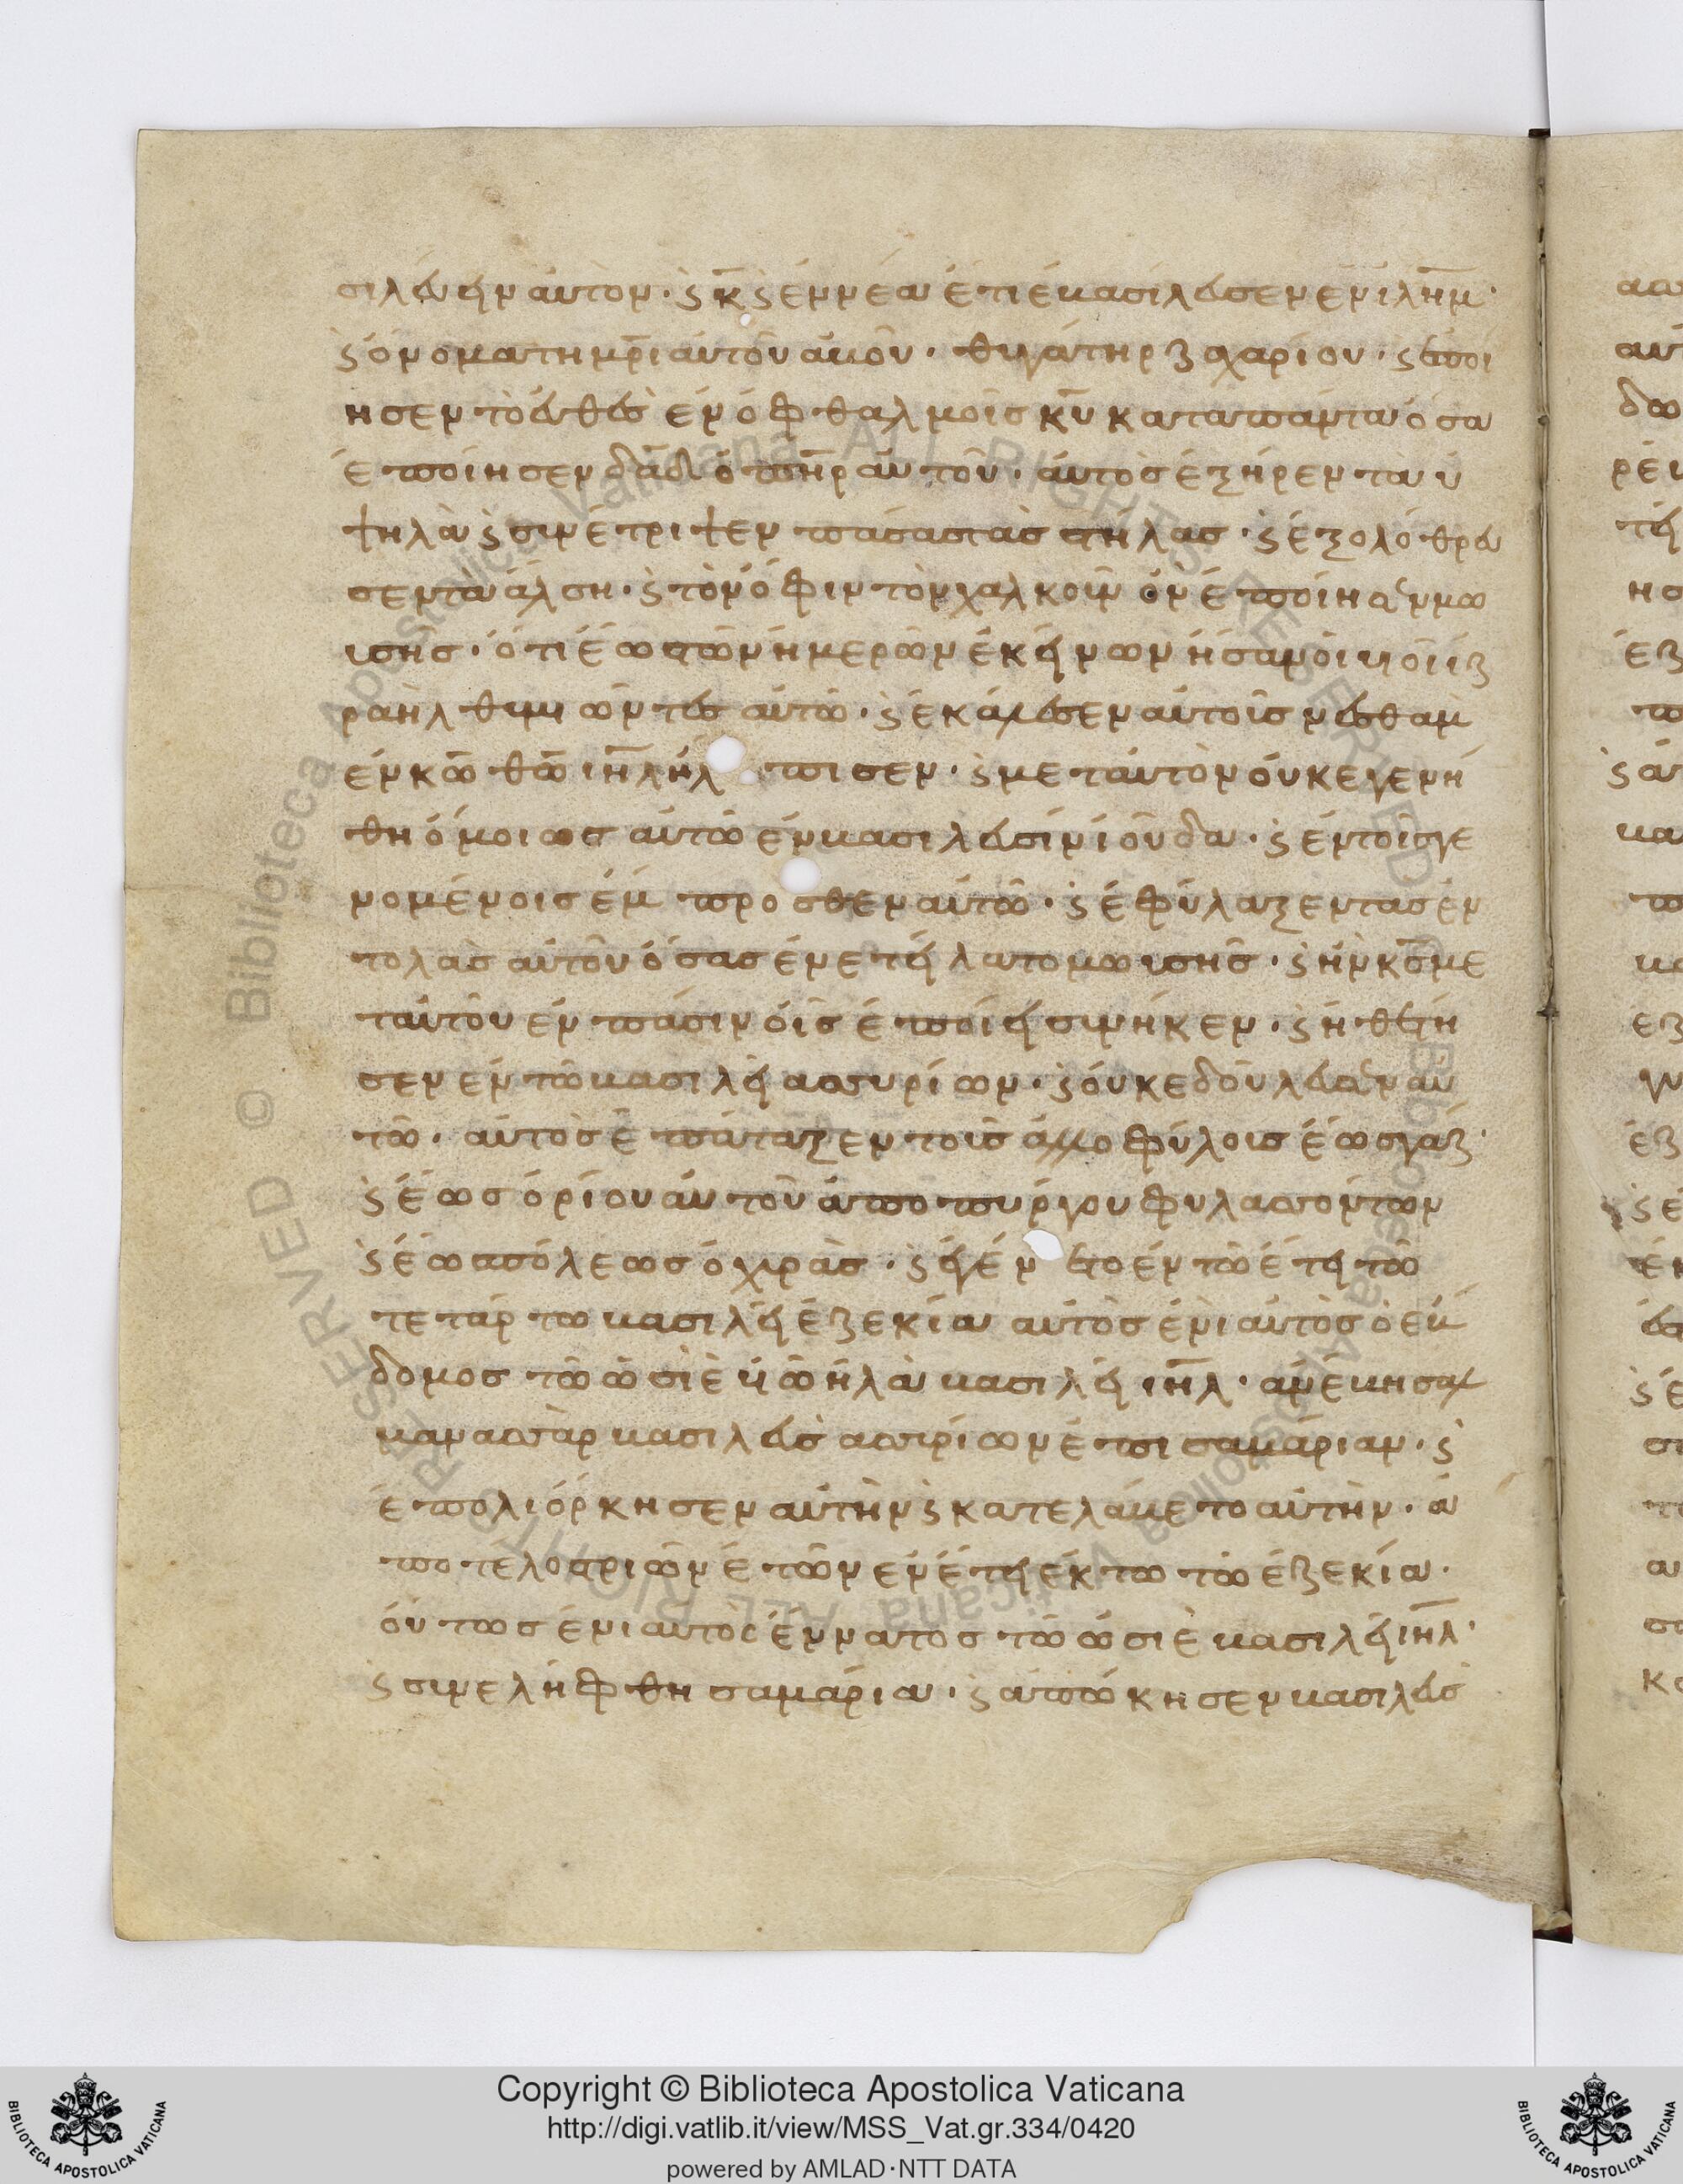 σιλεύειν αὐτὸν· ϗ κ̅ ϗ ἐννέα ἔτι ἐβασίλευσεν ἐν ἰλ̅η̅μ·
ϗ ὄνομα τῆ μρ̅ι αὐτοῦ ἀβοῦ· θυγάτηρ ζαχαρίου· ϗ ἐποί
ησεν τὸ εὐθὲς ἐν ὀφθαλμοῖς κ̅υ κατα πάντα ὅσα
ἐποίησεν δα̅δ ὁ π̅η̅ρ αὐτοῦ· αὐτὸς ἐξήρεν τὰ ὑ
ψηλὰ ϗ συνέτριψεν πάσας τὰς στήλας· ϗ ἐξολόθρευ
σεν τὰ ἄλση· ϗ τὸν ὄφιν τὸν χαλκοῦν ὃν ἐποίησεν μω
υσῆς· ὅτι ἕως τῶν ἡμερῶν ἐκείνων ἦσαν οἱ υἱοὶ ἰζ
ραὴλ θυμιῶντες αὐτῶ· ϗ ἐκάλεσεν αὐτοῖς νεσθὰμ
ἐν κ̅ω̅ θ̅ω̅ ι̅η̅λ ἤλπισεν· ϗ μετ' αὐτὸν οὐκ ἐγενή
θη ὅμοιος αὐτῶ ἐν βασιλεῦσιν ἰούδα· ϗ ἐν τοῖς γε
νομένοις ἔμπροσθεν αὐτῶ· ϗ ἐφύλαξεν τας ἐν
τολὰς αὐτοῦ ὅσας ἐνετείλατο μωυσῆς· ϗ ἦν κ̅ς με
τ' αὐτοῦ ἐν πάσιν οἷς ἐποίει συνήκεν· ϗ ἠθέτη
σεν ἐν τῶ βασιλεῖ ασσυρίων· ϗ οὐκ ἐδούλευσεν αυ
τῶ· αὐτὸς ἐπάταξεν τοὺς ἀλλοφύλους ἕως γάζ·
ϗ ἕως ὁρίου αὐτοῦ ἀπὸ πυργου φυλασσόντων
ϗ ἕως πόλεως ὀχυρᾶς· ϗ ἐγένετο ἐν τῶ ἔτει τῶ
τετάρτω βασιλεῖ ἐζεκία αὐτὸς ἐνιαυτὸς ὁ ἕβ
δομος τῶ ὡσιὲ υἱῶ ἠλὰ βασιλεῖ ι̅η̅λ· ἀνέβη σαλ
μανασσὰρ βασιλεὺς ασσυρίων ἐπι σαμάριαν· ϗ
ἐπολιόρκησεν αὐτὴν ϗ κατελάβετο αὐτὴν· ἀ
πο τέλους τριῶν ἐτῶν ἐν ἔτει ἕκτω τῶ ἐζεκία·
οὗτως ἐνιαυτὸς ἔννατος τῶ ὡσιὲ βασιλεῖ ι̅η̅λ·
ϗ συνελήφθη σαμάρια· ϗ ἀπώκησεν βασιλεὺς
Copyright © Biblioteca Apostolica Vaticana
http://digi.vatlib.it/view/MSS_Vat.gr.334/0420
powered by AMLAD·NTT DATA